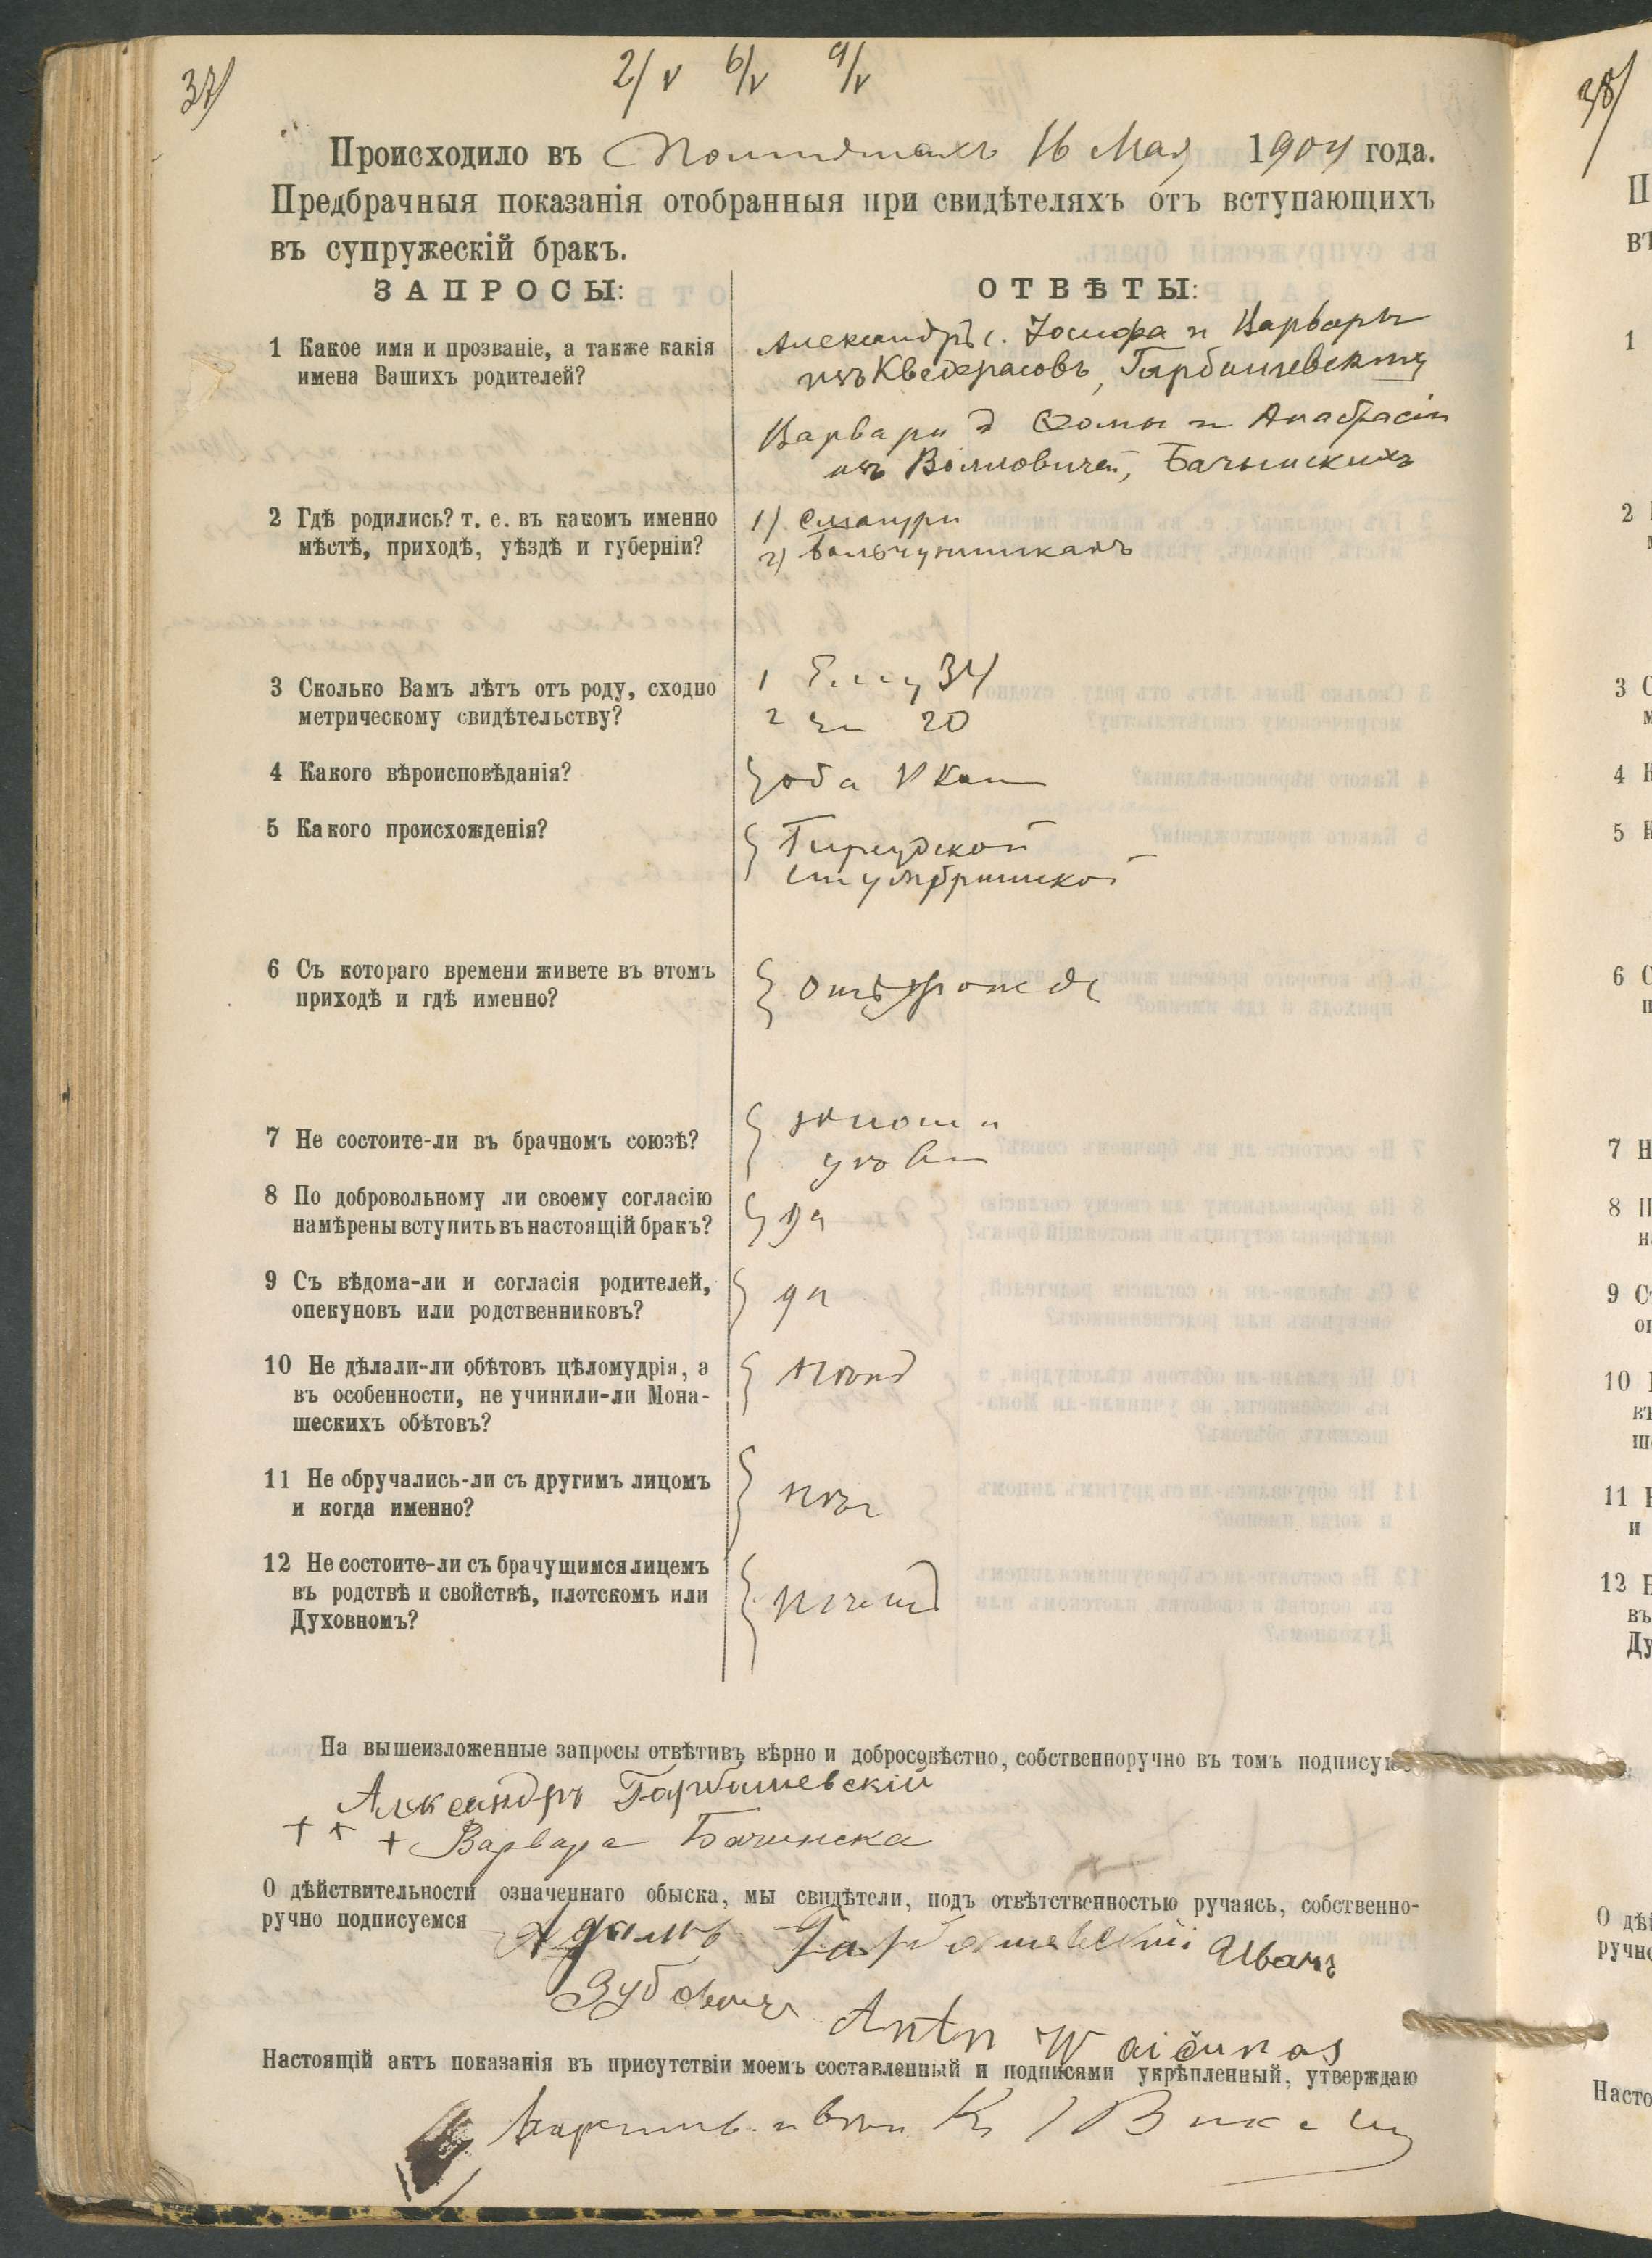 37/
2/V 6/V 9/V
Происходило въ 16 Мая 1904 года.
Предбрачныя показанія отобранныя при свидѣтеляхъ отъ вступающихъ
въ супружескій бракъ.
ЗАПРОСЫ:
ОТВѢТЫ:
1 Какое имя и прозваніе, а также какія
имена Вашихъ родителей?
Александръ с. Іосифа и Варвары
изъ Кведерасовъ, Гарбашевскихъ
Варвара д Ѳомы и Анастасіи
изъ Войловичей, Бачынскихъ
2 Гдѣ родились? т. е. въ какомъ именно
мѣстѣ, приходѣ, уѣздѣ и губерніи?
1)
2)
3 Сколько Вамъ лѣтъ отъ роду, сходно
метрическому свидѣтельству?
1 Ему 34
2 Ей 20
4 Какого вѣроисповѣданія?
оба Р Кат
5 Какого происхожденія?
6 Съ котораго времени живете въ этомъ
приходѣ и гдѣ именно?
Отъ рожде
7 Не состоите-ли въ брачномъ союзѣ?
юноша
дѣв
8 По добровольному ли своему согласію
намѣрены вступить въ настоящій бракъ?
да
9 Съ вѣдома-ли и согласія родителей,
опекуновъ или родственниковъ?
да
10 Не дѣлали-ли обѣтовъ цѣломудрія, а
въ особенности, не учинили-ли Мона-
шескихъ обѣтовъ?
нѣтъ
11 Не обручались-ли съ другимъ лицомъ
и когда именно?
нѣтъ
12 Не состоите-ли съ брачущимся лицемъ
въ родствѣ и свойствѣ, плотскомъ или
Духовномъ?
На вышеизложенные запросы отвѣтивъ вѣрно и добросовѣстно, собственноручно въ томъ подписую
Александръ Гарбашевскій
+ + + Варвара Бачинска
О дѣйствительности означеннаго обыска, мы свидѣтели, подъ отвѣтственностью ручаясь, собственно-
ручно подписуемся
Адамъ Гарбашевскій Иванъ
Зубовичъ
Antn Waičunas
Настоящій актъ показанія въ присутствіи моемъ составленный и подписями укрѣпленный, утверждаю